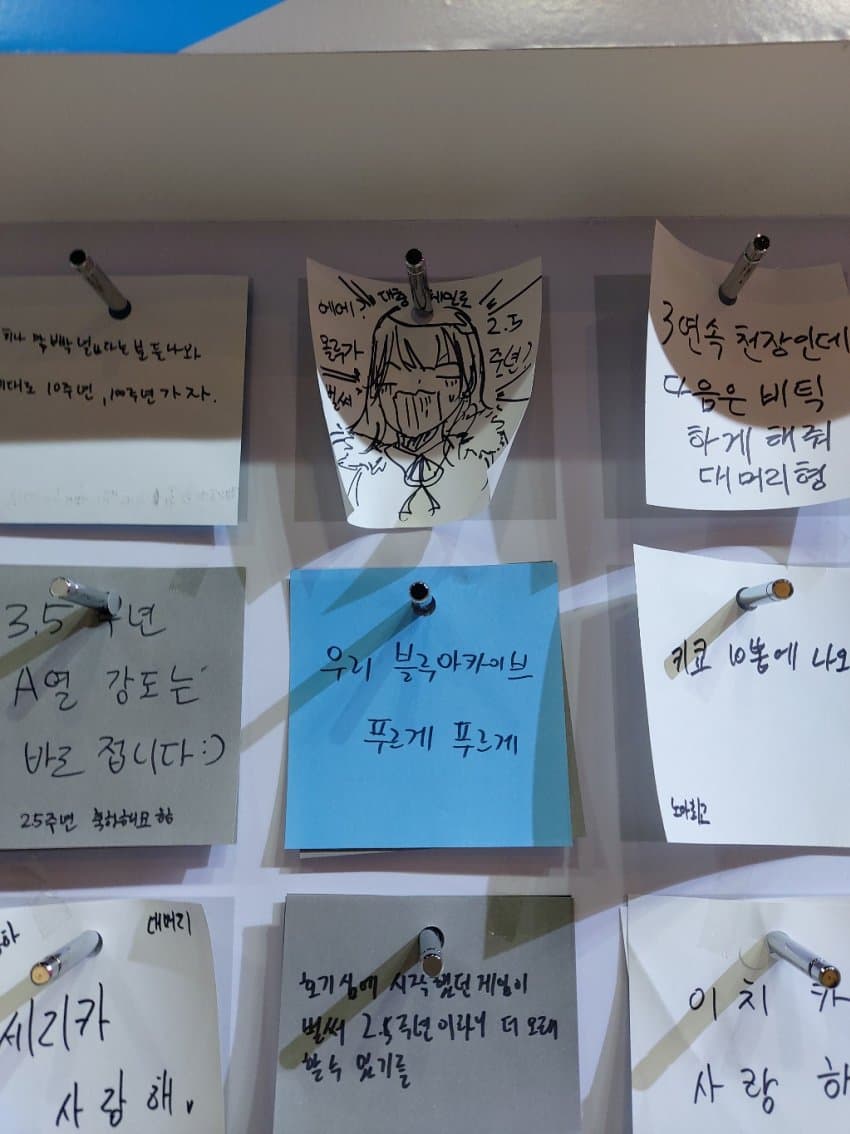 10주년, 100주년 가자.
에에?
대충
몰루가
벌써
2.5
주년?
3연속 천장인데
다음은 비틱
하게 해줘
대머리형
3.5주년
A열 강도는
바로 접니다 :)
2.5주년 축하해요
우리 블루아카이브
푸르게 푸르게
키쿄 10뽑에 나오
대머리
세리카
사랑해.
호기심에 시작했던 게임이
벌써 2.5주년이라니 더 오래
할 수 있기를
이치카
사랑해